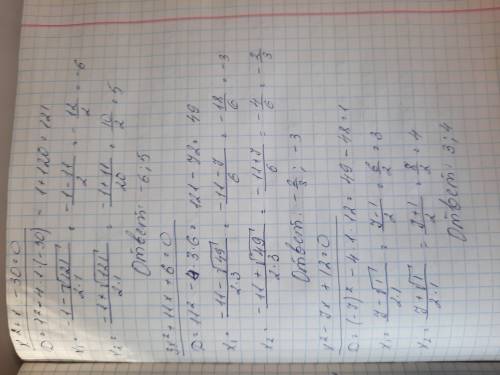 x²+x-30=0
D=1²-4·1·(-30) = 1+120=121
x₁= (-1-√121)/(2·1) = (-1-11)/2 = -12/2 = -6
x₂= (-1+√121)/(2·1) = (-1+11)/20 = 10/2 = 5
Ответ: -6; 5
3x²+11x+6=0
D=11²-4·3·6= 121-72= 49
x₁= (-11-√49)/(2·3) = (-11-7)/6 = -18/6 = -3
x₂= (-11+√49)/(2·3) = (-11+7)/6 = -4/6 = -2/3
Ответ: -2/3; -3
x²-7x+12=0
D=(-7)²-4·1·12=49-48=1
x₁= (7-√1)/(2·1) = (7-1)/2 = 6/2 = 3
x₂= (7+√1)/(2·1) = (7+1)/2 = 8/2 = 4
Ответ: 3; 4